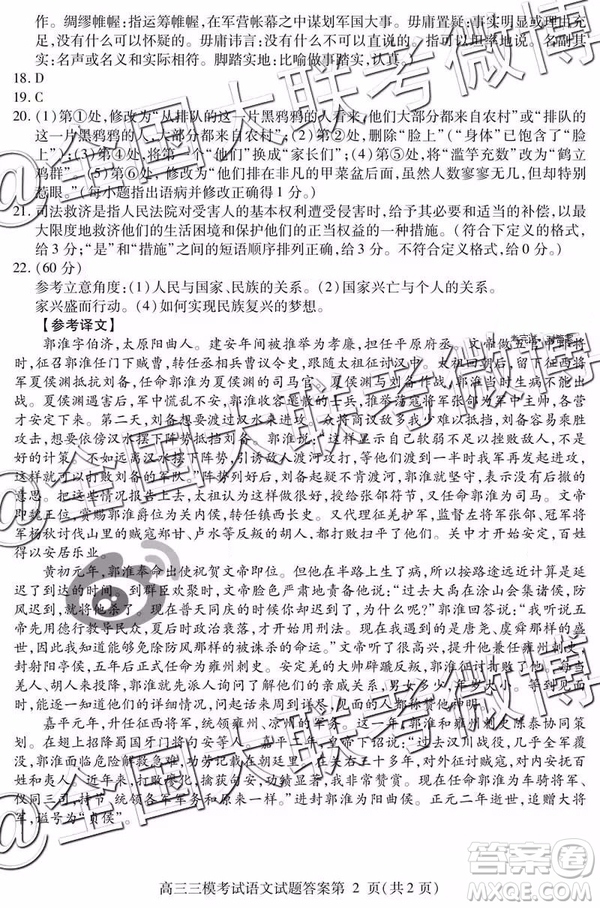 作。绸缪帷幄：指运筹帷幄，在军营帐幕之中谋划军国大事。毋庸置疑：事实明显或理由充
足，没有什么可以怀疑的。毋庸讳言：没有什么不可以直说的；可以坦率地说。名副其
实：名声或名义和实际相符。脚踏实地：比喻做事踏实，认真。）
18. D
19. C
20. (1)第①处，修改为“从排队的这一片黑鸦鸦的人来看，他们大部分都来自农村”或“排队
的这一片黑鸦鸦的人，大部分都来自农村”；(2)第②处，删除“脸上”（“身体”已包含了
“脸上”）；(3)第④处，将第一个“他们”换成“家长们”；(4)第⑤处，将“滥竽充数”改为“鹤立
鸡群”。(5)第⑥处，修改为“他们排在非凡的甲菜盆后面，虽然人数寥寥无几，但却特别
惹眼。”（每小题指出语病并修改正确得1分。）
21. 司法救济是指人民法院对受害人的基本权利遭受侵害时，给予其必要和适当的补偿，以最
大限度地救济他们的生活困境和保护他们的正当权益的一种措施。（符合下定义格式，
给3分；“是”和“措施”之间的短语顺序排列符合逻辑，给3分。不符合定义格式，给0分。）
22. (60分)
参考立意角度：(1)人民与国家、民族的关系。(2)国家兴亡与个人的关系。
家兴盛而行动。(4)如何实现民族复兴的梦想。
【参考译文】
郭淮字伯济，太原阳曲人。建安年间被推举为孝廉，担任平原府丞。文帝做五官将
时，征召郭淮任门下贼曹，转任丞相兵曹议令史，跟随太祖征讨汉中。太祖返回，留下征西将
军夏侯渊抵抗刘备，任命郭淮为夏侯渊的司马官。夏侯渊与刘备作战，郭淮当时有病没有
出战。夏侯渊遇害后，军中慌乱不安，郭淮收聚逃散的士兵，推举荡寇将军张郃为军中主
将，各营才安定下来。第二天，刘备想要渡过汉水来进攻。众将商议敌众我少，刘备容易乘
胜进攻，想要依傍汉水摆下阵势，来抵抗刘备。郭淮说：“这样是显示自己力量弱小，不是
好的计策。不如远离汉水摆下阵势，引诱敌人渡河过来，敌人渡河到一半然后发起进攻，这
样，就可以打败刘备的军队。”阵势列好后，刘备疑惧不肯渡河，郭淮就坚守，表示没有后撤
的意思。把这些情况报告上去，太祖很赞赏，授给张郃符节，又任命郭淮为司马。文帝
即魏王位，赏赐郭淮关内侯的爵位，转任镇西长史。又代理征羌护军，监护左将军张郃、冠军将
军杨秋讨伐山里的贼寇郑甘、卢水的反叛胡人，都打败并平定了他们。关中才开始安定，百姓得
以安居乐业。
黄初元年，郭淮奉命出使祝贺文帝即位。但他在半路上生了病，所以按路途远近计算是延
迟到达了的时间。到群臣欢聚时，文帝脸色严肃地责备郭淮说：“过去大禹在涂山会集诸侯，防
风迟到，就杀掉了他。现在普天同庆而你却迟到，为什么？”郭淮回答说：“我听说五
帝先用德行教导民众，夏后政治衰微，才开始使用刑法。现在我是遇到了唐尧、虞舜那样的世
道，因此我知道能够免除防风那样的被诛杀的命运。”文帝听了很高兴，提升他兼任雍州刺史，
封射阳亭侯，五年后正式任命为雍州刺史。安定羌的大帅辟蹏反叛，郭淮讨伐降服了他。每当
羌人、胡人来归降，郭淮就先派人询问他们的亲戚关系，男女多少，年龄大小；等到见面时，一一
知道他们的详细情况，问得很周到，人们都称赞他神明。
嘉平元年，升任征西将军，统领雍州、凉州的军事。这年，郭淮和雍州刺史陈泰协同策
划，在翅上招降蜀国牙门将句安等人。嘉平二年，皇帝下诏说：“过去汉川战役，几乎全军覆
没，郭淮面临危险解救危难，功劳记载在王府。在关右三十多年，对外征讨贼寇，对内安抚百
姓和夷人。近年以来，打败廖化，擒获句安，功绩显著，我非常赞赏。现在任命郭淮为车骑将军、
仪同三司，持节、统领各军军务和原来一样。”进封郭淮为阳曲侯。正元二年逝世，追赠大将
军，谥号为“贞侯”。
高三三模考试语文试题答案第 2 页(共2页)